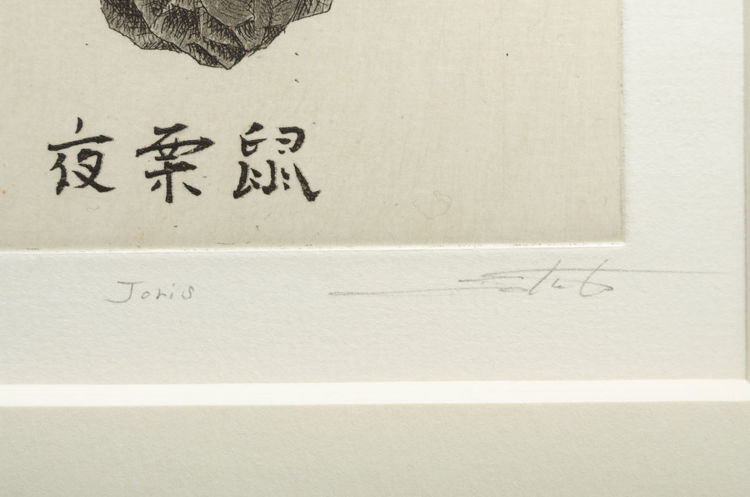 夜栗鼠
Joris